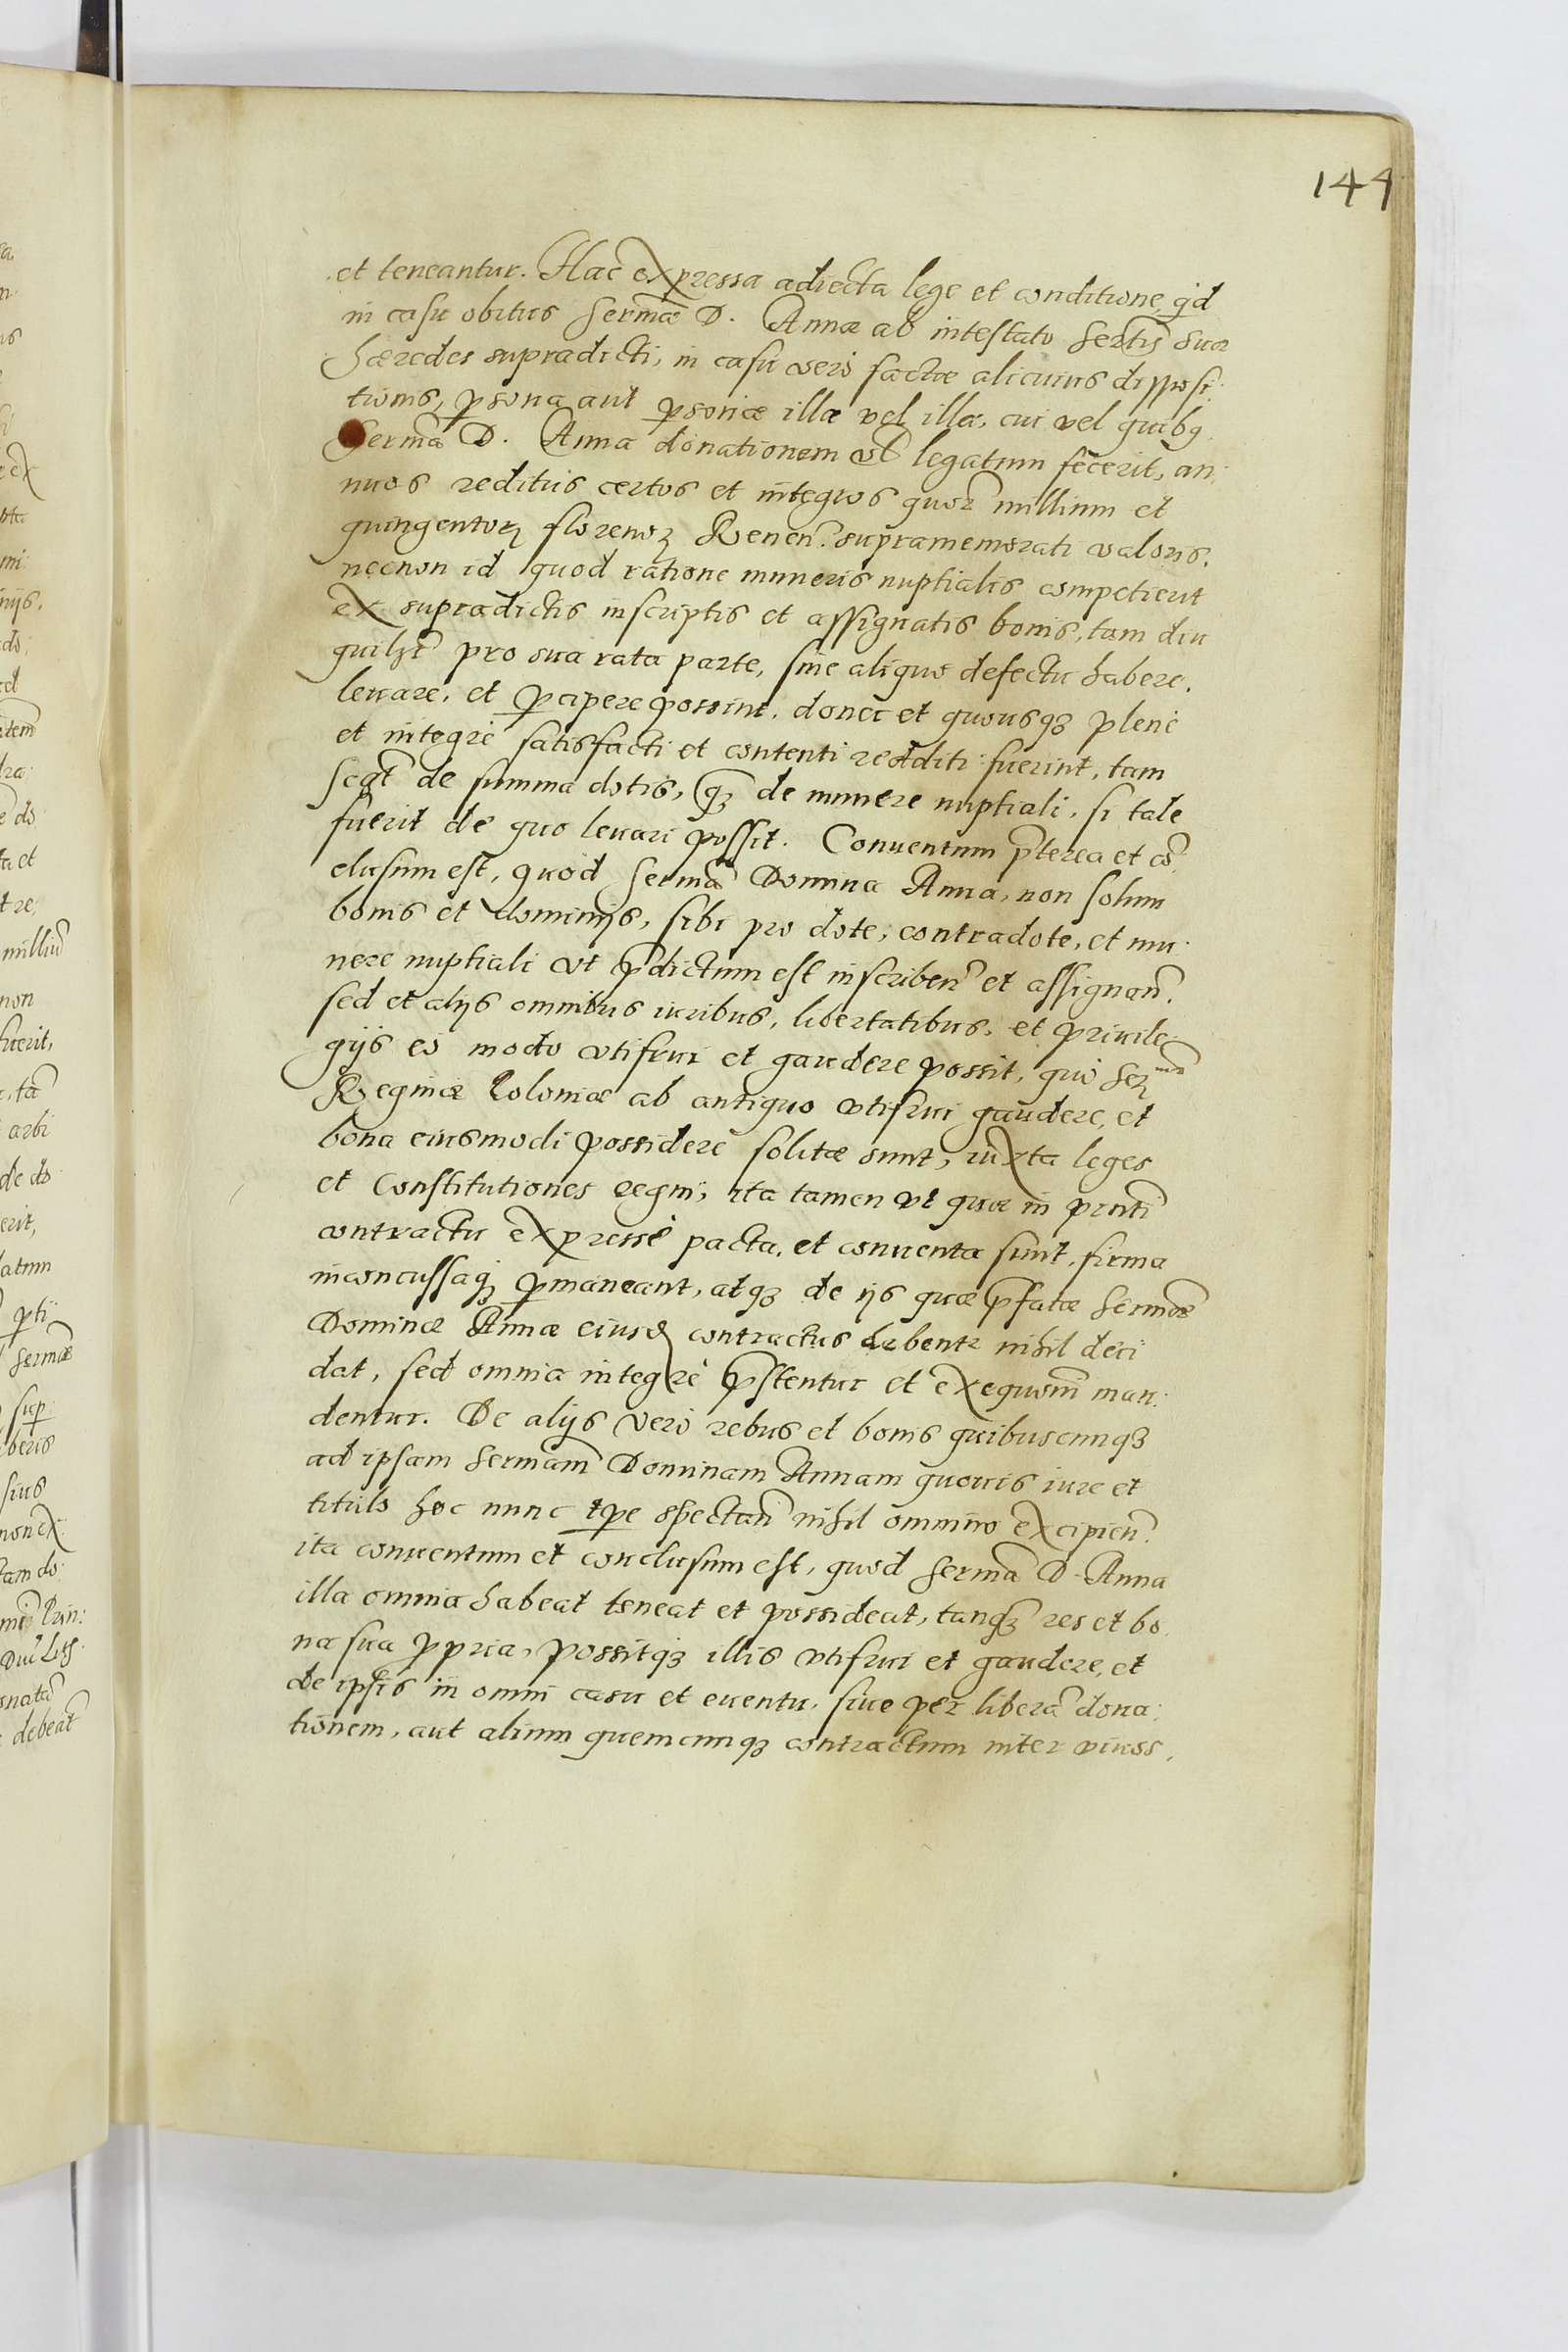 144
et teneantur. Hac expressa adiecta lege et conditione, qd
in casu obitus Sermæ D. Annæ ab intestato Sertis suæ
hæredes supradicti, in casu verò factæ alicuius disposi:
tionis, psona aut psonæ illæ vel illa, cui vel quibq
Serma D. Anna donationem vl legatum fecerit, an:
nuos reditus certos et integros quor millium et
quingentorꝝ florenoꝝ Renen. supramemorati valoris.
necnon id quod ratione muneris nuptialis competierit
ex supradictis inscriptis et assignatis bonis, tam diu
quilꝫt pro sua rata parte, sine aliquo defectu habere.
leuare, et pcipere possint, donec et quousqꝫ plenè
et integrè satisfacti et contenti redditi fuerint, tam
scꝫt de summa dotis, qꝫ de munere nuptiali, si tale
fuerit de quo leuari possit. Conuentum pterea et cō
clusum est, quod Serma Domina Anna, non solum
bonis et dominijs, sibi pro dote, contradote, et mu:
nere nuptiali vt pdictum est inscriben et assignan.
sed et alijs omnibus iuribus, libertatibus, et priuile
gijs eo modo vtifrui et gaudere possit, quo Serᵐᵃ
Reginæ Poloniæ ab antiquo vtifrui gaudere, et
bona eiusmodi possidere solitæ sunt, iuxta leges
et Constitutiones regni, ita tamen vt quæ in pnti
contractu expressè pacta, et conuenta sunt, firma
inconcussaqꝫ pmaneant, atqꝫ de ijs quæ pfatæ Sermæ
Dominæ Annæ eiusd contractus debentr nihil deci
dat, sed omnia integrè pstentur et exequom man:
dentur. De alijs verò rebus et bonis quibuscunqꝫ
ad ipsam Sermam Dominam Annam quouis iure et
titulo hoc nunc tpe spectan nihil omnino excipien.
ita conuentum et conclusum est, quod Serma D. Anna
illa omnia habeat teneat et possideat, tanqꝫ res et bo
na sua ppria, possitqꝫ illis vtifrui et gaudere, et
de ipsis in omni casu et euentu, siue per liberā dona:
tionem, aut alium quemcunqꝫ contractum inter viuos,